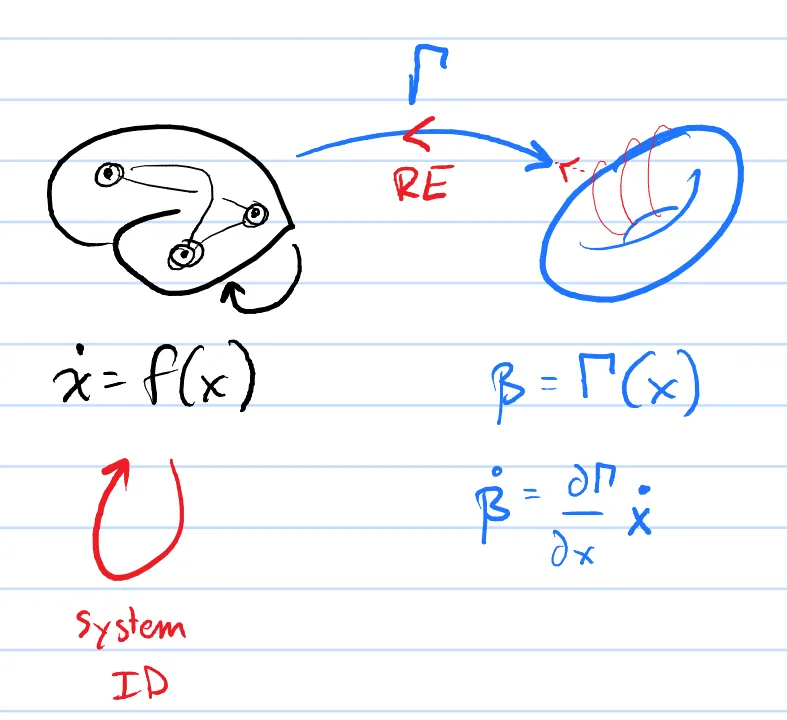 Γ
RE
ẋ = f(x)
β = Γ(x)
β̇ = ∂Γ/∂x ẋ
System
ID